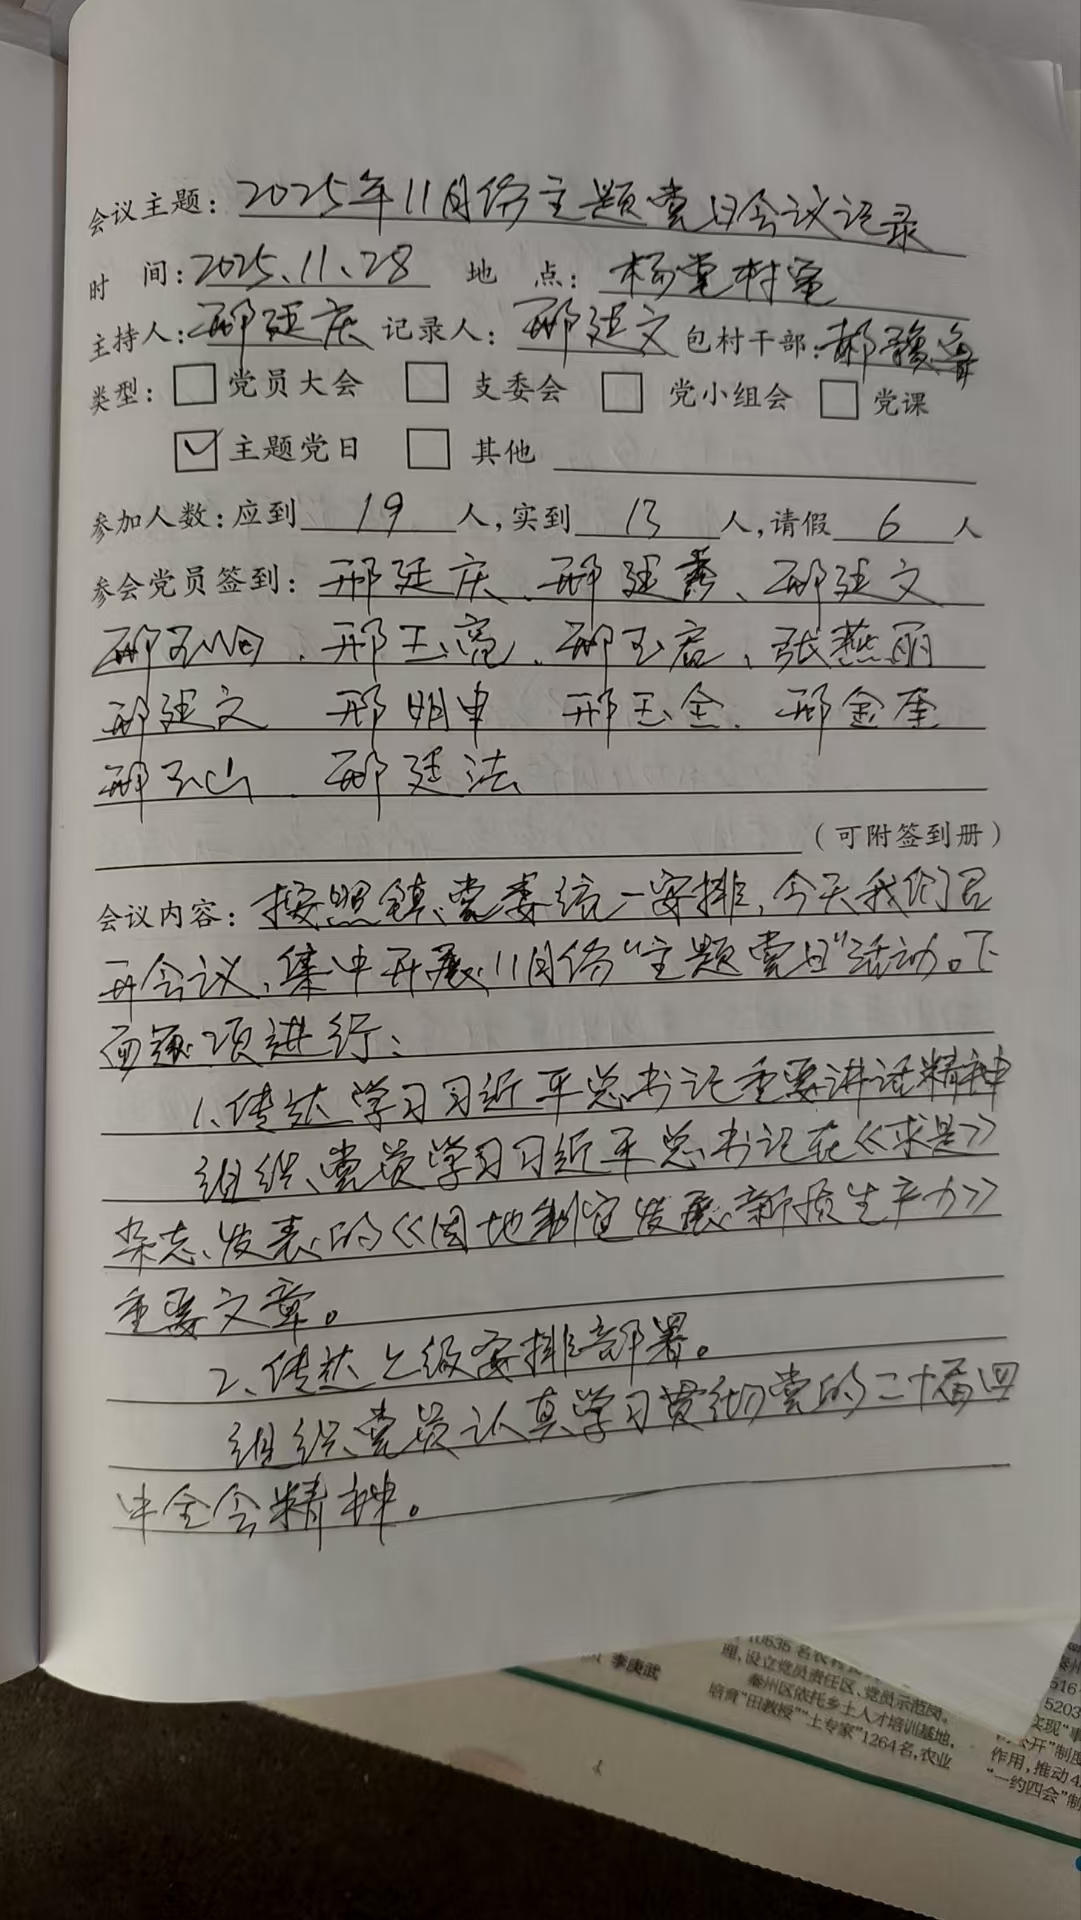 会议主题：2025年11月份主题党日会议记录
时 间：2025.11.28 地 点：杨党村室
主持人：邢廷庆 记录人：邢廷文 包村干部：郝
类型：□党员大会 □支委会 □党小组会 □党课
☑主题党日 □其他
参加人数：应到 19 人，实到 13 人，请假 6 人
参会党员签到：邢廷庆、邢廷、邢廷文
邢玉、邢玉亮、邢玉君、张燕丽
邢廷文 邢明申 邢玉全、邢金奎
邢玉山、邢廷法
（可附签到册）
会议内容：按照镇党委统一安排，今天我们召
开会议，集中开展11月份“主题党日”活动。下
面逐项进行：
1、传达学习习近平总书记重要讲话精神
组织党员学习习近平总书记在《求是》
杂志发表的《因地制宜发展新质生产力》
重要文章。
2、传达上级安排部署。
组织党员认真学习贯彻党的二十届四
中全会精神。
10635 名农村党
理，设立党员责任区、党员示范岗。
李庚武
秦州区依托乡土人才培训基地，
培育“田教授”“土专家”1264名，农业
516
5203
实现“事
公开”制度
作用，推动4
“一约四会”制